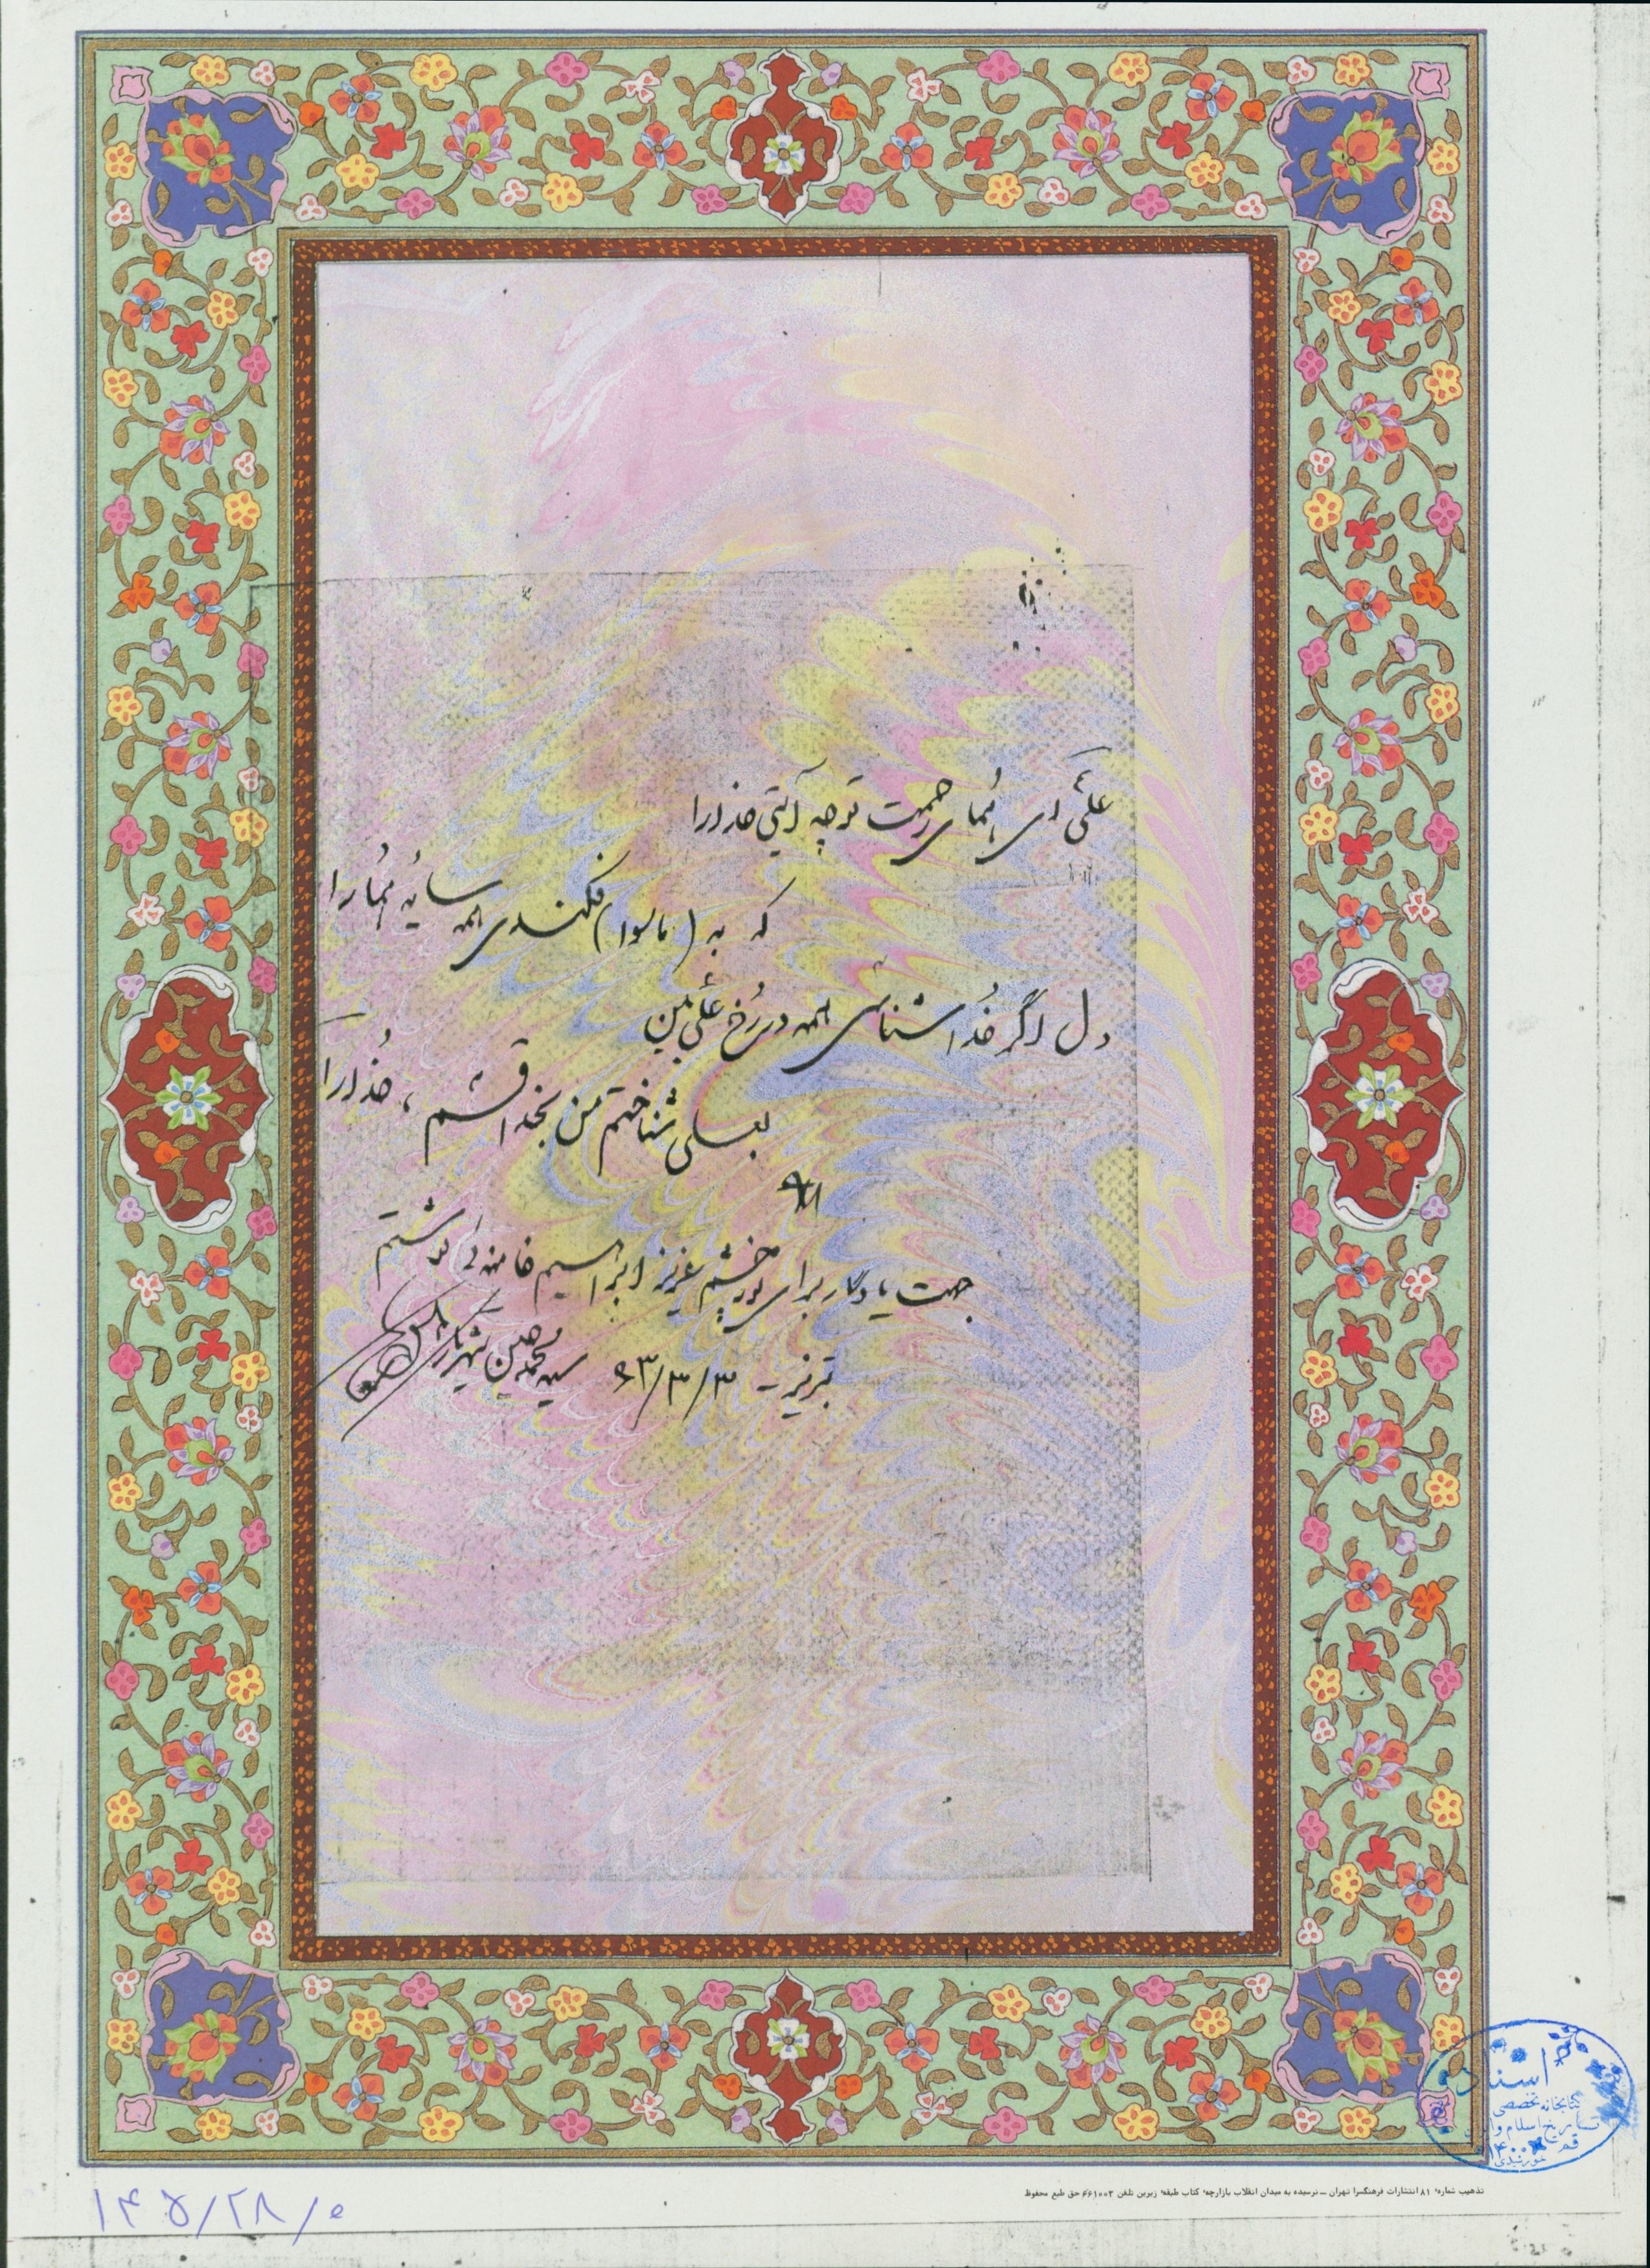 علی ای همای رحمت تو چه آیتی خدا را
که به (ماسوا) فکندی همه سایهٔ هما را
دل اگر خداشناسی همه در رخ علی بین
بعلی شناختم من بخدا قسم، خدا را
جهت یادگار برای نورچشم عزیز ابراهیم خامنه‌ای نوشتم
تبریز - ۶۳/۳/۳ سید محمدحسین شهریار
اسناد
کتابخانه تخصصی
تاریخ اسلام و
قم
تذهیب شماره ۸۱ انتشارات فرهنگسرا تهران ــ نرسیده به میدان انقلاب بازارچه کتاب طبقه زیرین تلفن ۶۶۱۰۰۳ حق طبع محفوظ
۱۴۵/۲۸/۰